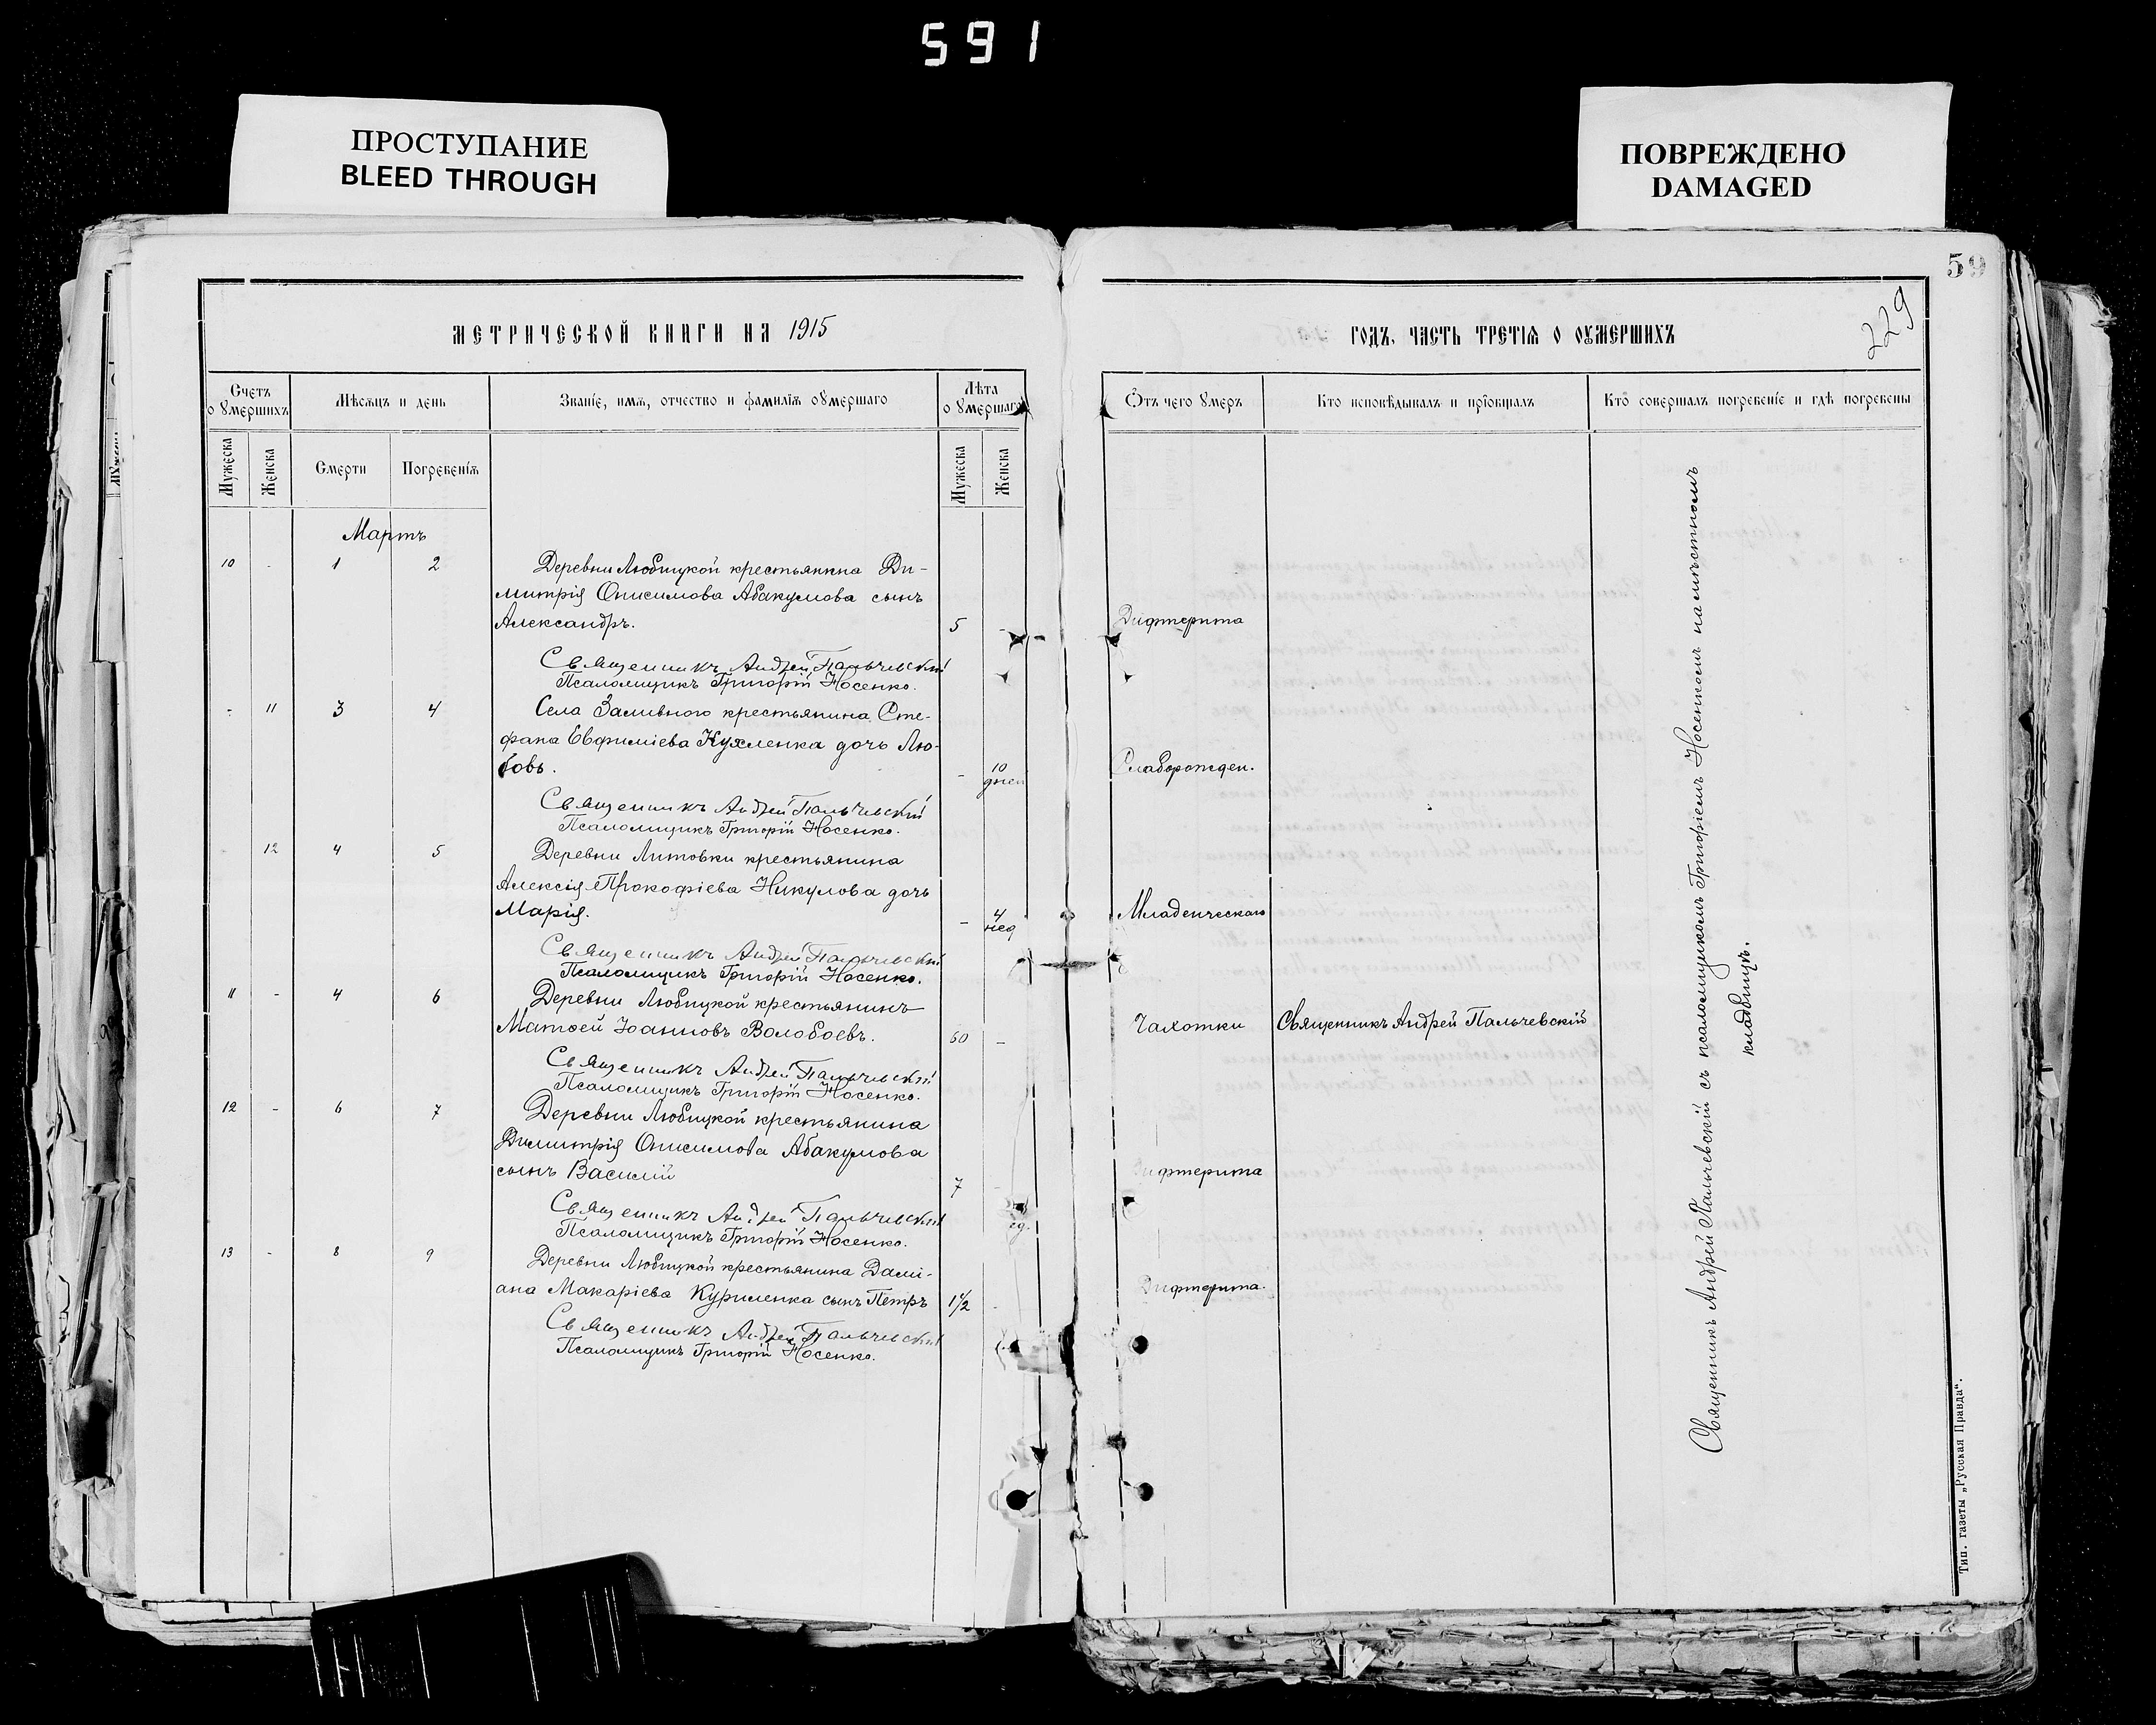 591
ПРОСТУПАНИЕ
BLEED THROUGH
ПОВРЕЖДЕНО
DAMAGED
59
229
МЕТРИЧЕСКОЙ КНИГИ НА 1915
Счетъ о умершихъ
Мѣсяцъ и день
Званіе, имя, отчество и фамилія оумершаго
Лѣта о умершаго
Мужеска
Женска
Смерти
Погребенія
Мужеска
Женска
Мартъ
10 - 1 2 Деревни Любицкой крестьянина Ди-
митрія Онисимова Абакумова сынъ
Александръ. 5 -
Священникъ Андрей Пальчевскій
Псаломщикъ Григорій Носенко.
- 11 3 4 Села Заливного крестьянина Сте-
фана Евфиміева Кухленка дочь Лю-
бовь. - 10 дней
Священникъ Андрей Пальчевскій
Псаломщикъ Григорій Носенко.
- 12 4 5 Деревни Литовки крестьянина
Алексія Прокофіева Никулова дочь
Марія. - 4 нед
Священникъ Андрей Пальчевскій
Псаломщикъ Григорій Носенко.
11 - 4 6 Деревни Любицкой крестьянинъ
Матѳей Іоанновъ Волобоевъ. 60 -
Священникъ Андрей Пальчевскій
Псаломщикъ Григорій Носенко.
12 - 6 7 Деревни Любицкой крестьянина
Димитрія Онисимова Абакумова
сынъ Василій 7
Священникъ Андрей Пальчевскій
Псаломщикъ Григорій Носенко.
13 - 8 9 Деревни Любицкой крестьянина Дамі-
ана Макаріева Куриленка сынъ Петръ 1 1/2 -
Священникъ Андрей Пальчевскій
Псаломщикъ Григорій Носенко.
ГОДЪ, ЧАСТЬ ТРЕТІЯ О ОУМЕРШИХЪ
Отъ чего умеръ
Кто исповѣдывалъ и пріобщалъ
Кто совершалъ погребеніе и гдѣ погребены
Дифтерита
Слаборожден.
Младенческаго
Чахотки Священникъ Андрей Пальчевскій
Дифтерита
Дифтерита.
Священникъ Андрей Пальчевскій съ псаломщикомъ Григоріемъ Носенкомъ на мѣстномъ
кладбищѣ.
Тип. газеты „Русская Правда“.